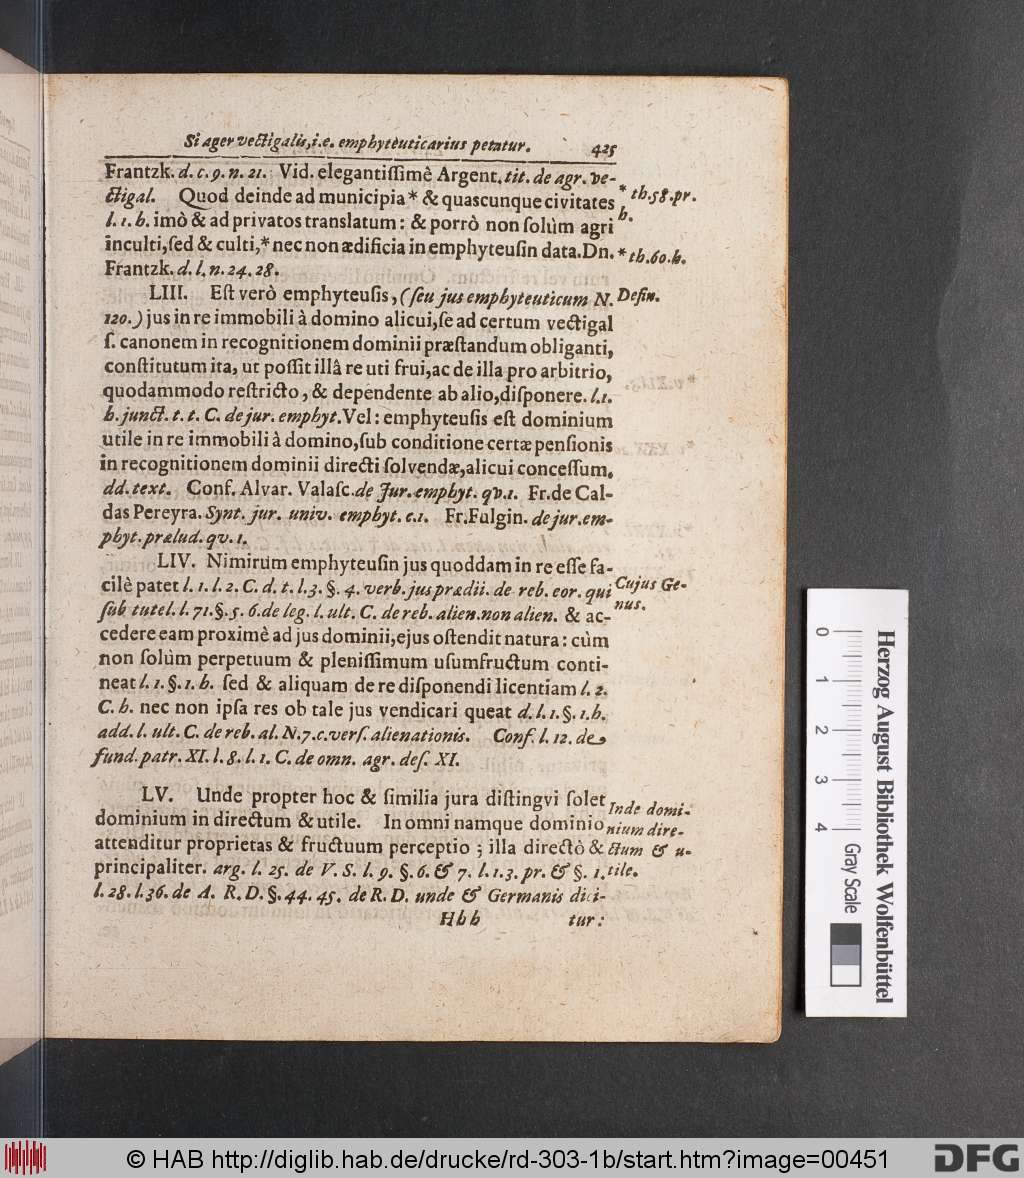 Si ager vectigalis, i.e. emphyteuticarius petatur. 425
Frantzk. d. c. 9. n. 21. Vid. elegantiſſimè Argent. tit. de agr. ve-
ctigal. Quod deinde ad municipia * & quascunque civitates * th. 58. pr.
l. 1. h. imò & ad privatos translatum: & porrò non ſolùm agri h.
inculti, ſed & culti, * nec non ædificia in emphyteuſin data. Dn. * th. 60. h.
Frantzk. d. l. n. 24. 28.
LIII. Eſt verò emphyteuſis, (ſeu jus emphyteuticum N. Defin.
120.) jus in re immobili à domino alicui, ſe ad certum vectigal
ſ. canonem in recognitionem dominii præſtandum obliganti,
conſtitutum ita, ut poſſit illâ re uti frui, ac de illa pro arbitrio,
quodammodo reſtricto, & dependente ab alio, diſponere. l. 1.
h. junct. t. t. C. de jur. emphyt. Vel: emphyteuſis eſt dominium
utile in re immobili à domino, ſub conditione certæ penſionis
in recognitionem dominii directi ſolvendæ, alicui conceſſum.
dd. text. Conf. Alvar. Valaſc. de Jur. emphyt. qv. 1. Fr. de Cal-
das Pereyra. Synt. jur. univ. emphyt. c. 1. Fr. Fulgin. de jur. em-
phyt. prælud. qv. 1.
LIV. Nimirùm emphyteuſin jus quoddam in re eſſe fa-
cilè patet l. 1. l. 2. C. d. t. l. 3. §. 4. verb. jus prædii. de reb. eor. qui Cujus Ge-
ſub tutel. l. 71. §. 5. 6. de leg. l. ult. C. de reb. alien. non alien. & ac- nus.
cedere eam proximè ad jus dominii, ejus oſtendit natura: cùm
non ſolùm perpetuum & pleniſſimum uſumfructum conti-
neat l. 1. §. 1. h. ſed & aliquam de re diſponendi licentiam l. 2.
C. h. nec non ipſa res ob tale jus vendicari queat d. l. 1. §. 1. h.
add. l. ult. C. de reb. al. N. 7. c. verſ. alienationis. Conf. l. 12. de
fund. patr. XI. l. 8. l. 1. C. de omn. agr. deſ. XI.
LV. Unde propter hoc & ſimilia jura diſtingvi ſolet Inde domi-
dominium in directum & utile. In omni namque dominio nium dire-
attenditur proprietas & fructuum perceptio; illa directò & ctum & u-
principaliter. arg. l. 25. de V. S. l. 9. §. 6. & 7. l. 1. 3. pr. & §. 1. tile.
l. 28. l. 36. de A. R. D. §. 44. 45. de R. D. unde & Germanis dici-
Hhh tur:
0 1 2 3 4
Gray Scale
Herzog August Bibliothek Wolfenbüttel
© HAB http://diglib.hab.de/drucke/rd-303-1b/start.htm?image=00451
DFG